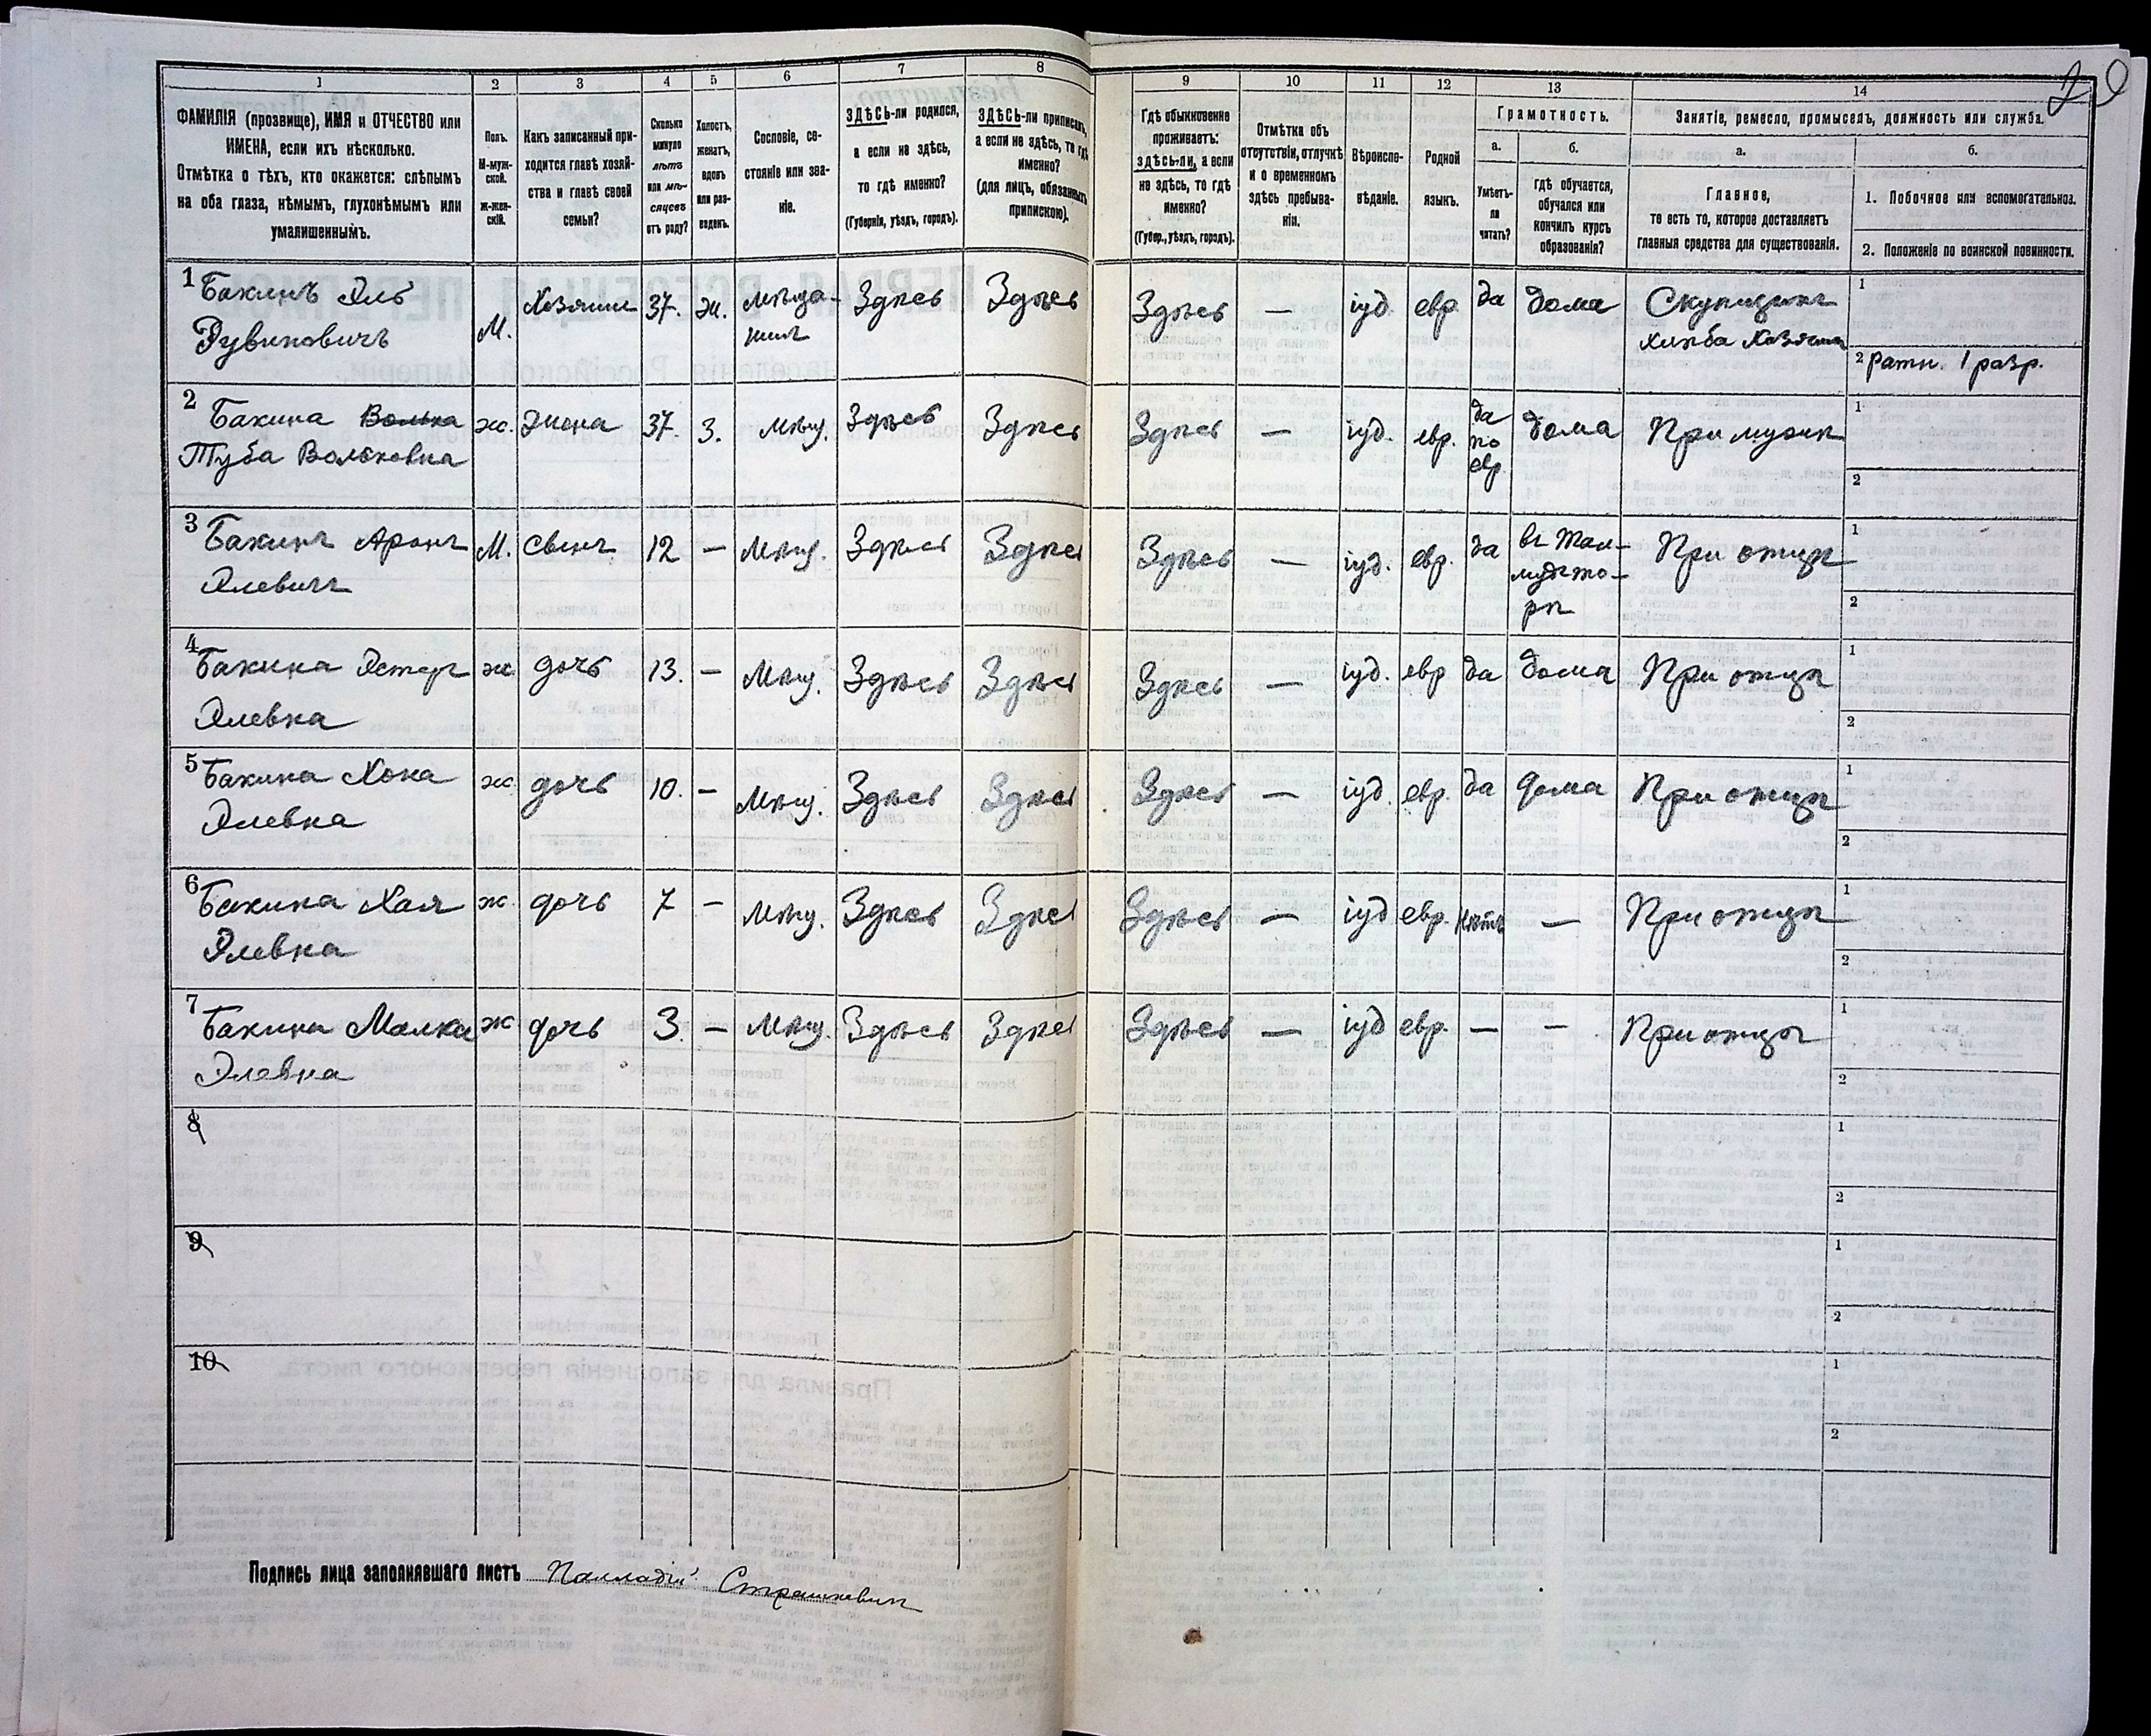 20
1 2 3 4 5 6 7 8 9 10 11 12 13 14
ФАМИЛІЯ (прозвище), ИМЯ и ОТЧЕСТВО или
ИМЕНА, если ихъ нѣсколько.
Отмѣтка о тѣхъ, кто окажется: слѣпымъ
на оба глаза, нѣмымъ, глухонѣмымъ или
умалишеннымъ.
Полъ.
М-муж-
ской.
Ж-жен-
скій.
Какъ записанный при-
ходится главѣ хозяй-
ства и главѣ своей
семьи?
Сколько
минуло
лѣтъ
или мѣ-
сяцевъ
отъ роду?
Холостъ,
женатъ,
вдовъ
или раз-
веденъ.
Сословіе, со-
стояніе или зва-
ніе.
ЗДѢСЬ-ли родился,
а если не здѣсь,
то гдѣ именно?
(Губернія, уѣздъ, городъ).
ЗДѢСЬ-ли приписанъ,
а если не здѣсь, то гдѣ
именно?
(для лицъ, обязанныхъ
припискою).
Гдѣ обыкновенно
проживаетъ:
здѣсь-ли, а если
не здѣсь, то гдѣ
именно?
(Губер., уѣздъ, городъ).
Отмѣтка объ
отсутствіи, отлучкѣ
и о временномъ
здѣсь пребыва-
ніи.
Вѣроиспо-
вѣданіе.
Родной
языкъ.
Грамотность.
а.
Умѣетъ-
ли
читать?
б.
гдѣ обучается,
обучался или
кончилъ курсъ
образованія?
Занятіе, ремесло, промыселъ, должность или служба.
а.
Главное,
то есть то, которое доставляетъ
главныя средства для существованія.
б.
1. Побочное или вспомогательное.
2. Положеніе по воинской повинности.
1 Бакинъ Эль
Рувиновичъ
М. Хозяинъ 37. Ж. Мѣща-
нинъ
Здѣсь Здѣсь Здѣсь — іуд. евр. да дома Скупщикъ
хлѣба Хозяинъ
1
2 Ратн. 1 разр.
2 Бакина Волька
Туба Вольковна
ж. Жена 37. З. Мѣщ. Здѣсь Здѣсь Здѣсь — іуд. евр. да
по
евр.
дома При мужѣ
1
2
3 Бакинъ Аронъ
Элевичъ
М. Сынъ 12 — Мѣщ. Здѣсь Здѣсь Здѣсь — іуд. евр. да въ Тал-
мудъ то-
рѣ
При отцѣ
1
2
4 Бакина Эстеръ
Элевна
ж дочь 13. — Мѣщ. Здѣсь Здѣсь Здѣсь — іуд. евр да дома При отцѣ
1
2
5 Бакина Хона
Элевна
ж дочь 10. — Мѣщ. Здѣсь Здѣсь Здѣсь — іуд. евр. да дома При отцѣ
1
2
6 Бакина Хая
Элевна
ж. дочь 7 — Мѣщ. Здѣсь Здѣсь Здѣсь — іуд евр. Нѣтъ — При отцѣ
1
2
7 Бакина Малка
Элевна
ж дочь 3. — Мѣщ. Здѣсь Здѣсь Здѣсь — іуд евр. — — При отцѣ
1
2
8
1
2
9
1
2
10
1
2
Подпись лица заполнявшаго листъ Палладій Страшкевичъ